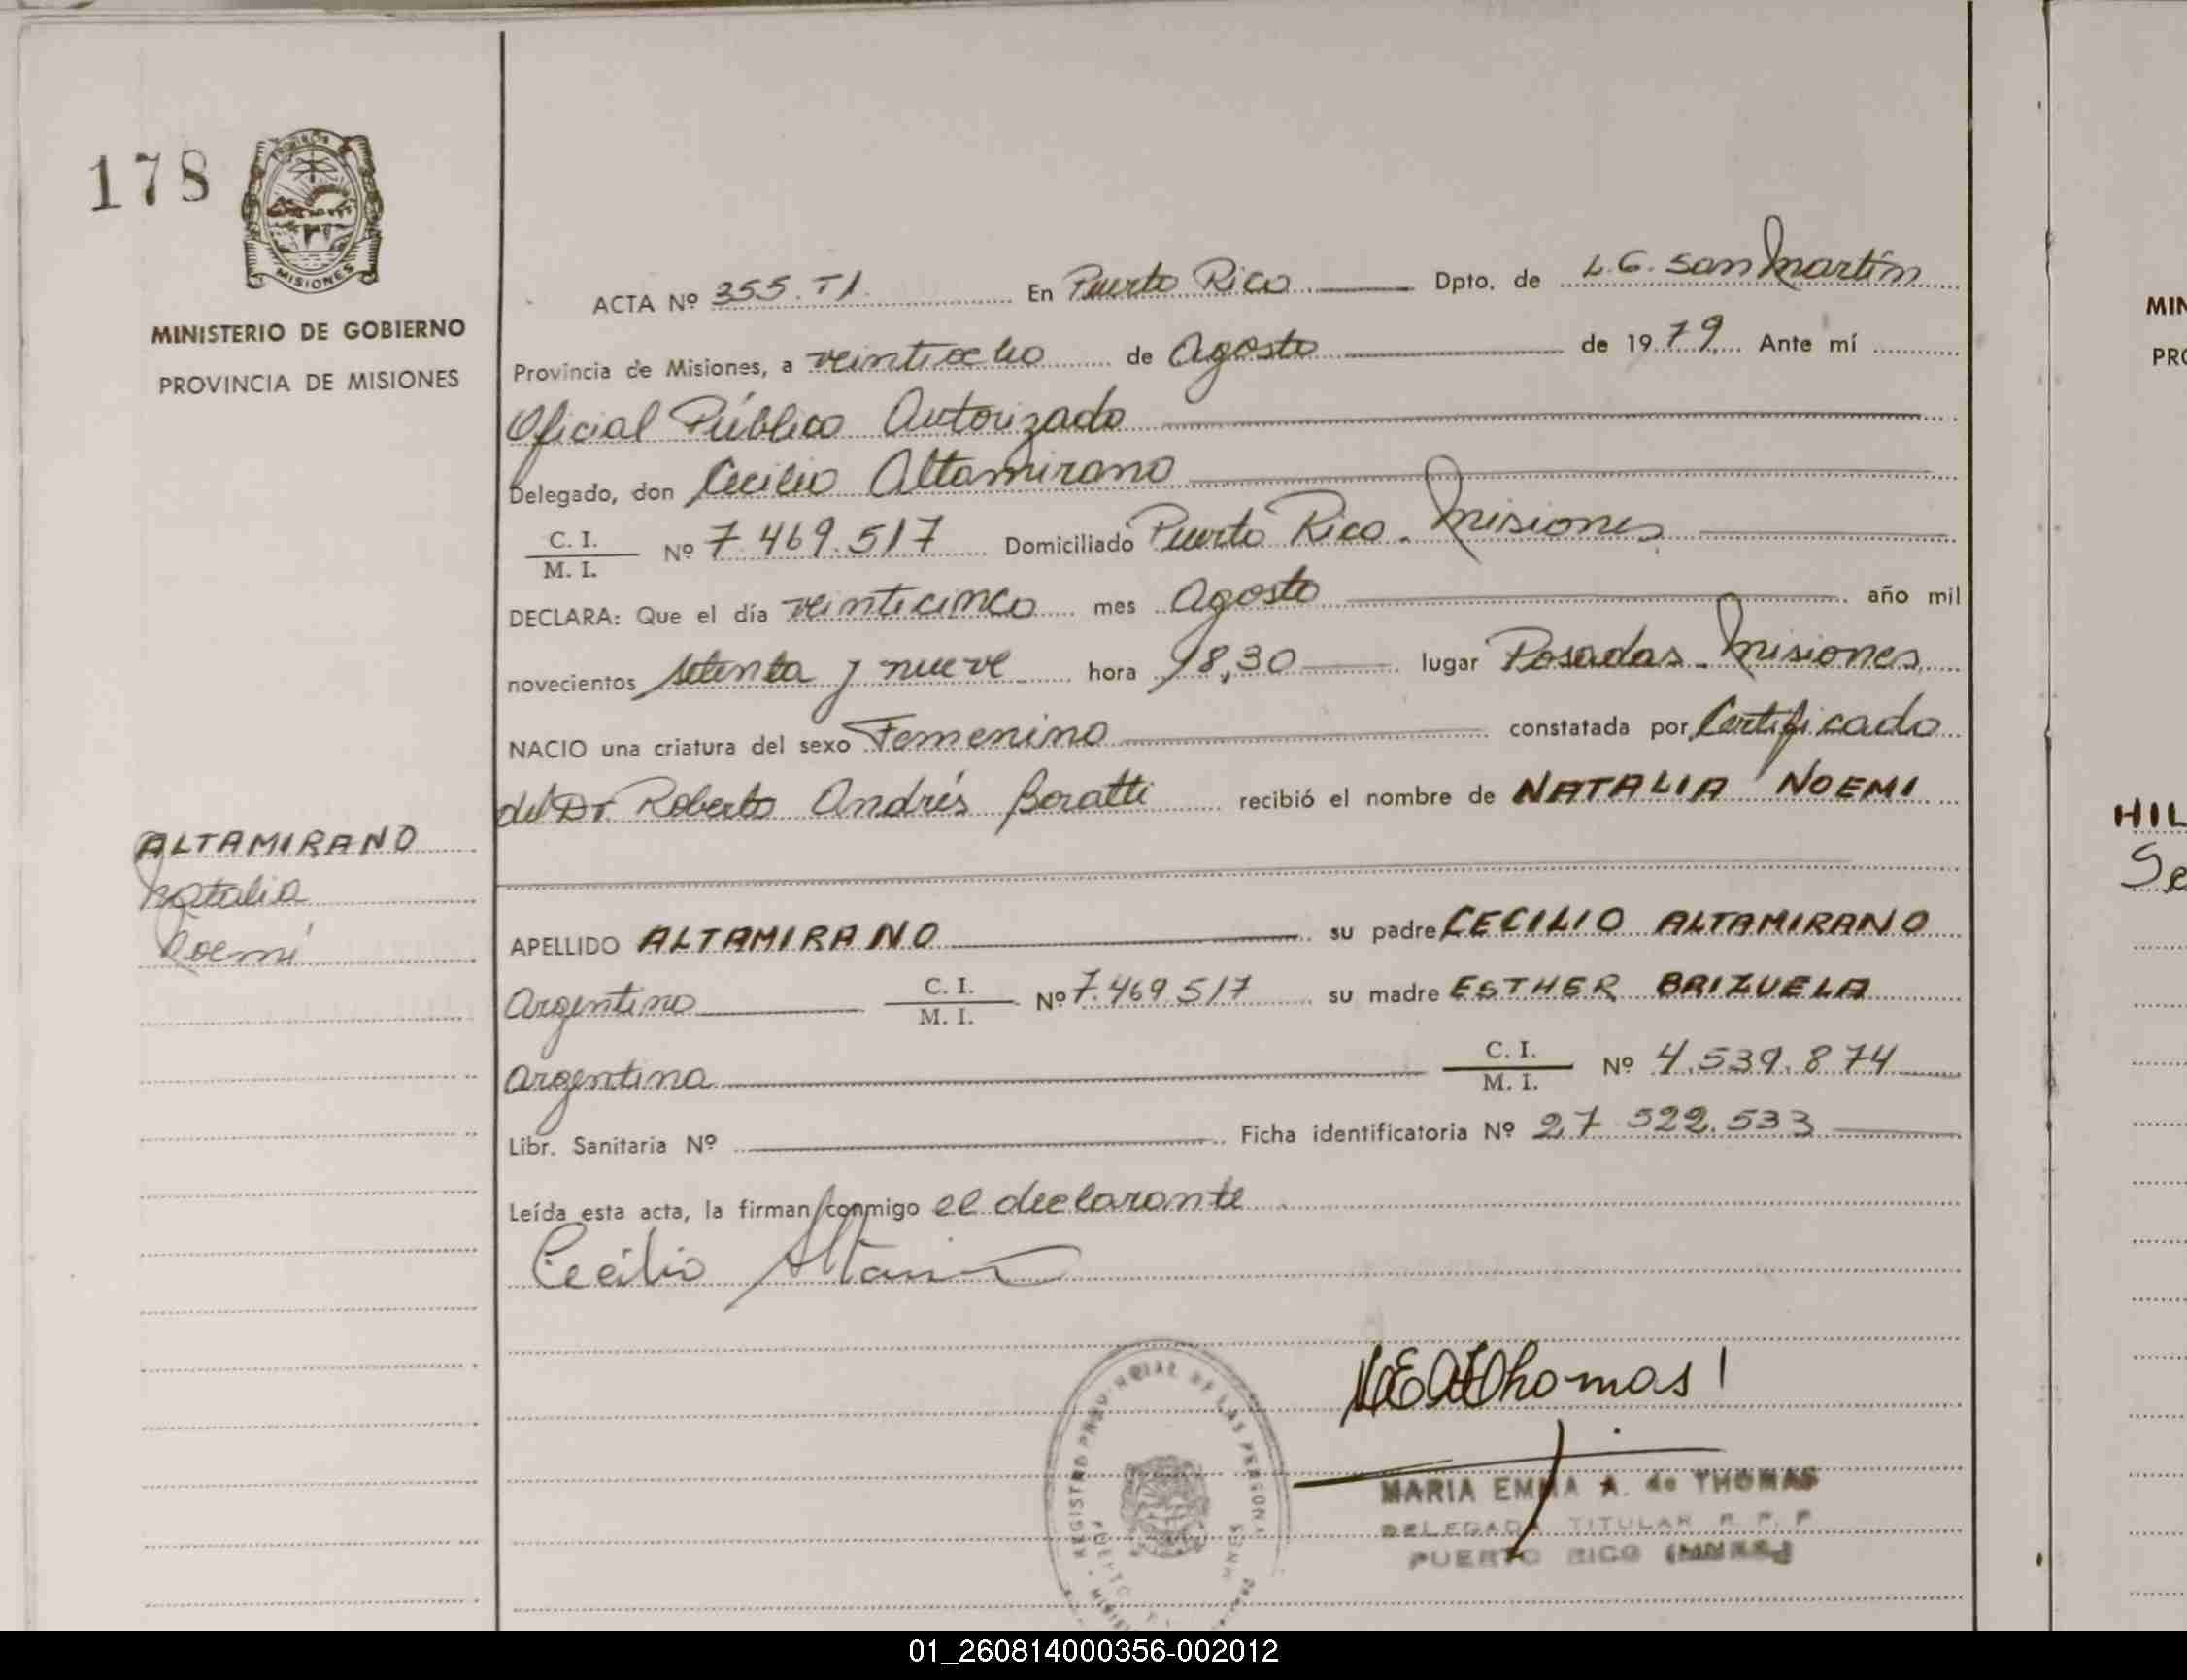 178
MISIONES
MINISTERIO DE GOBIERNO
PROVINCIA DE MISIONES
ALTAMIRANO
Natalia
Noemí
ACTA Nº 355. T1. En Puerto Rico Dpto. de L.G. San Martín
Provincia de Misiones, a veintiocho de Agosto de 1979 Ante mí
Oficial Público Autorizado
Delegado, don Cecilio Altamirano
C. I.
M. I. Nº 7.469.517 Domiciliado Puerto Rico. Misiones
DECLARA: Que el día veinticinco mes Agosto año mil
novecientos setenta y nueve hora 18,30 lugar Posadas - Misiones
NACIO una criatura del sexo Femenino constatada por Certificado
del Dr. Roberto Andrés Boratti recibió el nombre de NATALIA NOEMI
APELLIDO ALTAMIRANO su padre CECILIO ALTAMIRANO
Argentino C. I.
M. I. Nº 7.469 517 su madre ESTHER BRIZUELA
Argentina C. I.
M. I. Nº 4.539.874
Libr. Sanitaria Nº Ficha identificatoria Nº 27 522.533
Leída esta acta, la firman conmigo el declarante
Cecilio
Thomas
MARIA EMMA A. de THOMAS
DELEGADA TITULAR R. P. P
PUERTO RICO (MNES)
REGISTRO PROVINCIAL DE LAS PERSONAS
MIN
PRO
HIL
Se
01_260814000356-002012